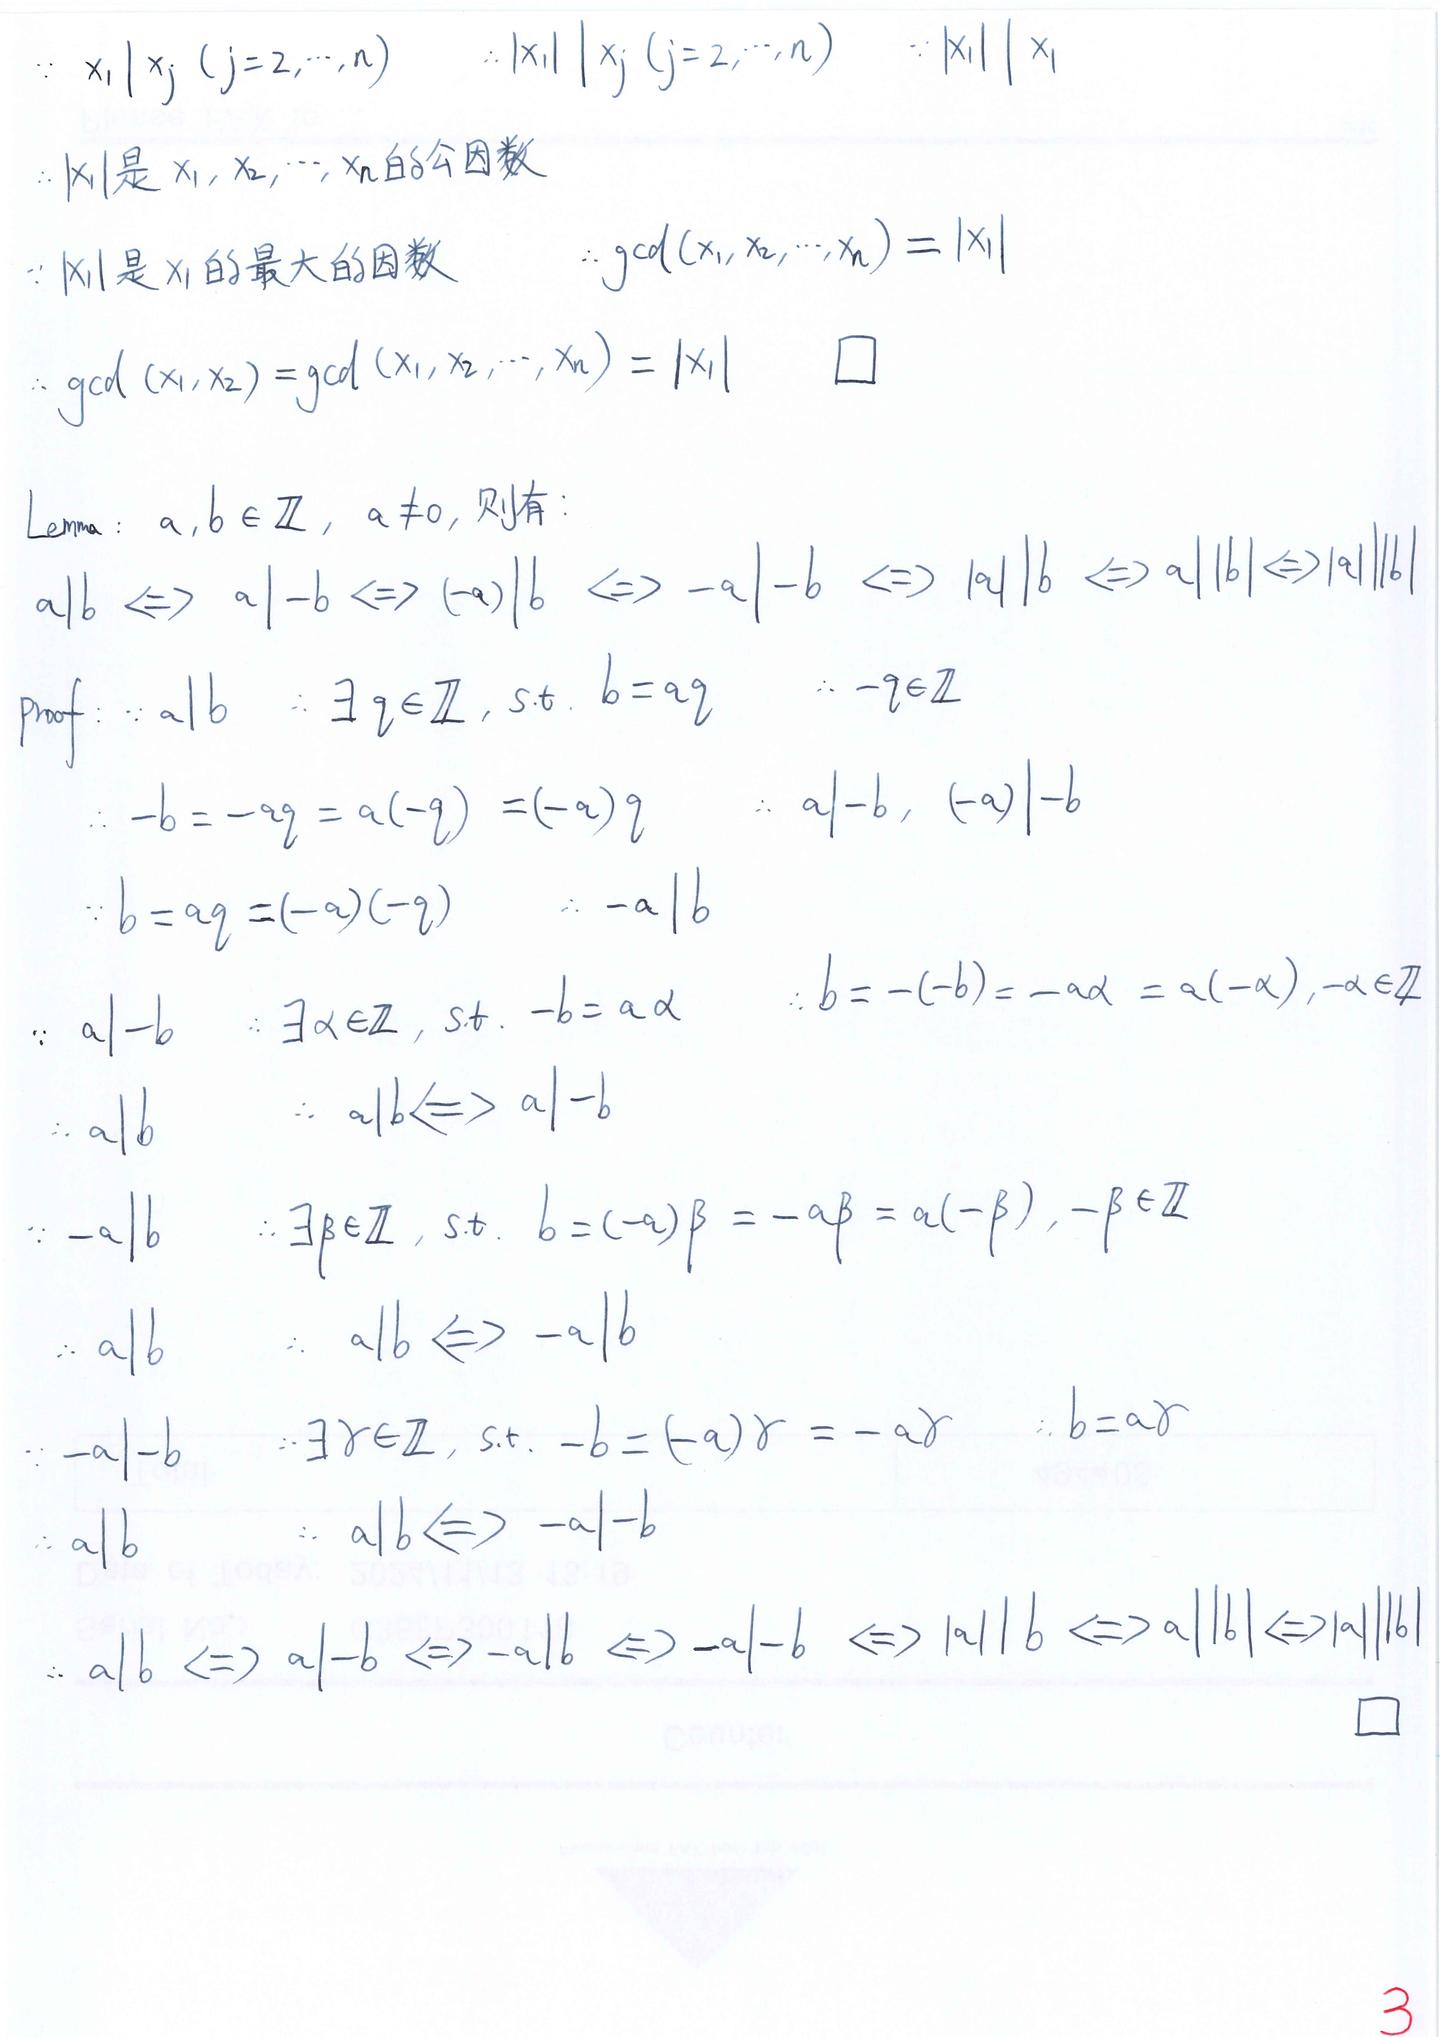 ∵ x₁|xⱼ (j=2,⋯,n) ∴ |x₁| | xⱼ (j=2,⋯,n) ∵ |x₁| | x₁
∴ |x₁|是 x₁, x₂, ⋯, xₙ的公因数
∵ |x₁|是 x₁的最大的因数 ∴ gcd(x₁, x₂, ⋯, xₙ) = |x₁|
∴ gcd(x₁, x₂) = gcd(x₁, x₂, ⋯, xₙ) = |x₁| □
Lemma: a, b ∈ ℤ, a ≠ 0, 则有:
a|b ⟺ a|-b ⟺ (-a)|b ⟺ -a|-b ⟺ |a| | b ⟺ a | |b| ⟺ |a| | |b|
Proof: ∵ a|b ∴ ∃ q∈ℤ, s.t. b=aq ∴ -q∈ℤ
∴ -b = -aq = a(-q) = (-a)q ∴ a|-b, (-a)|-b
∵ b = aq = (-a)(-q) ∴ -a|b
∵ a|-b ∴ ∃α∈ℤ, s.t. -b = aα ∴ b = -(-b) = -aα = a(-α), -α∈ℤ
∴ a|b ∴ a|b ⟺ a|-b
∵ -a|b ∴ ∃β∈ℤ, s.t. b = (-a)β = -aβ = a(-β), -β∈ℤ
∴ a|b ∴ a|b ⟺ -a|b
∵ -a|-b ∴ ∃γ∈ℤ, s.t. -b = (-a)γ = -aγ ∴ b = aγ
∴ a|b ∴ a|b ⟺ -a|-b
∴ a|b ⟺ a|-b ⟺ -a|b ⟺ -a|-b ⟺ |a| | b ⟺ a | |b| ⟺ |a| | |b|
□
3